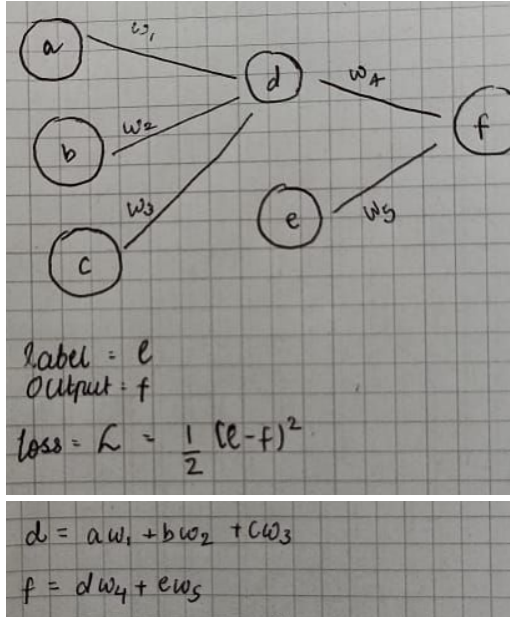 a
w₁
d
w₄
f
b
w₂
w₃
e
w₅
c
Label = l
Output = f
Loss = L = 1/2 (l-f)²
d = aw₁ + bw₂ + cw₃
f = dw₄ + ew₅